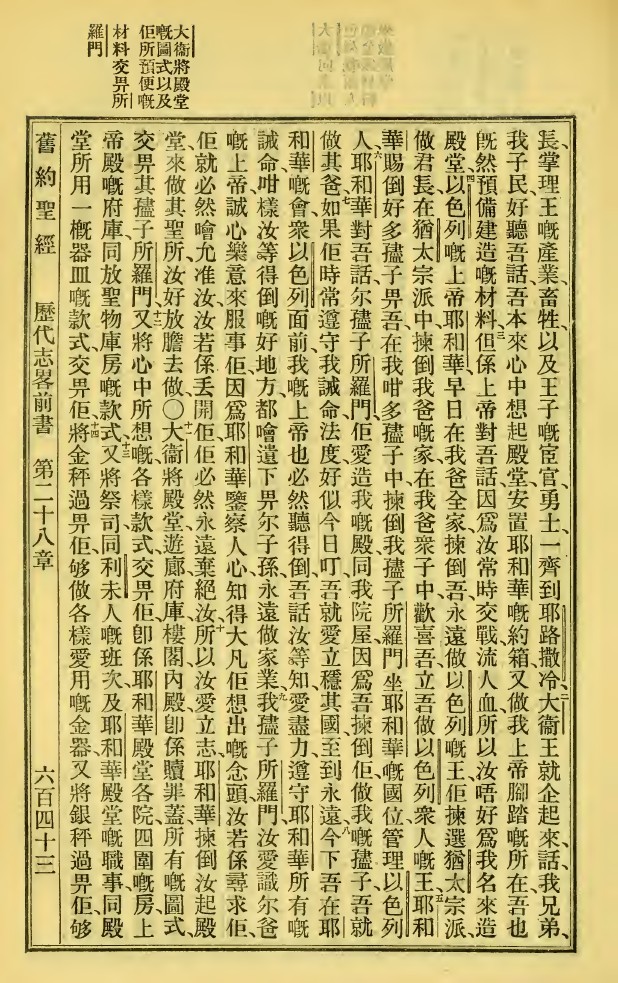 大衞將殿堂
嘅圖式以及
佢所預便嘅
材料交畀所
羅門
長、掌理王嘅產業、畜牲、以及王子嘅宦官、勇士、一齊到耶路撒冷、二大衞王就企起來話、我兄弟、
我子民、好聽吾話、吾本來心中想起殿堂、安置耶和華嘅約箱、又做我上帝腳踏嘅所在、吾也
旣然預備建造嘅材料、三但係上帝對吾話、因爲汝常時交戰流人血、所以汝唔好爲我名來造
殿堂、四以色列嘅上帝耶和華、早日在我爸全家揀倒吾、永遠做以色列嘅王、佢揀選猶太宗派、
做君長、在猶太宗派中、揀倒我爸嘅家、在我爸衆子中、歡喜吾、立吾做以色列衆人嘅王、五耶和
華賜倒好多孻子畀吾、在我咁多孻子中、揀倒我孻子所羅門、坐耶和華嘅國位、管理以色列
人、六耶和華對吾話、尔孻子所羅門、佢愛造我嘅殿、同我院屋、因爲吾揀倒佢做我嘅孻子、吾就
做其爸、七如果佢時常遵守我誡命法度、好似今日叮、吾就愛立穩其國、至到永遠、八今下吾在耶
和華嘅會衆、以色列面前、我嘅上帝也必然聽得倒、吾話汝等知、愛盡力遵守耶和華所有嘅
誡命、咁樣汝等得倒嘅好地方、都噲遺下畀尔子孫、永遠做家業、九我孻子所羅門、汝愛識尔爸
嘅上帝、誠心樂意來服事佢、因爲耶和華鑒察人心、知得大凡佢想出嘅念頭、汝若係尋求佢、
佢就必然噲允准汝、汝若係丢開佢、佢必然永遠棄絕汝、十所以汝愛立志、耶和華揀倒汝起殿
堂、來做其聖所、汝好放膽去做、〇十一大衞將殿堂、遊廊、府庫、樓閣、內殿、卽係贖罪蓋所有嘅圖式、
交畀其孻子所羅門、十二又將心中所想嘅各樣款式、交畀佢、卽係耶和華殿堂各院、四圍嘅房、上
帝殿嘅府庫、同放聖物庫房嘅款式、十三又將祭司同利未人嘅班次、及耶和華殿堂嘅職事、同殿
堂所用一概器皿嘅款式、交畀佢、十四將金秤過畀佢、够做各樣愛用嘅金器、又將銀秤過畀佢、够
舊約聖經 歷代志畧前書 第二十八章 六百四十三